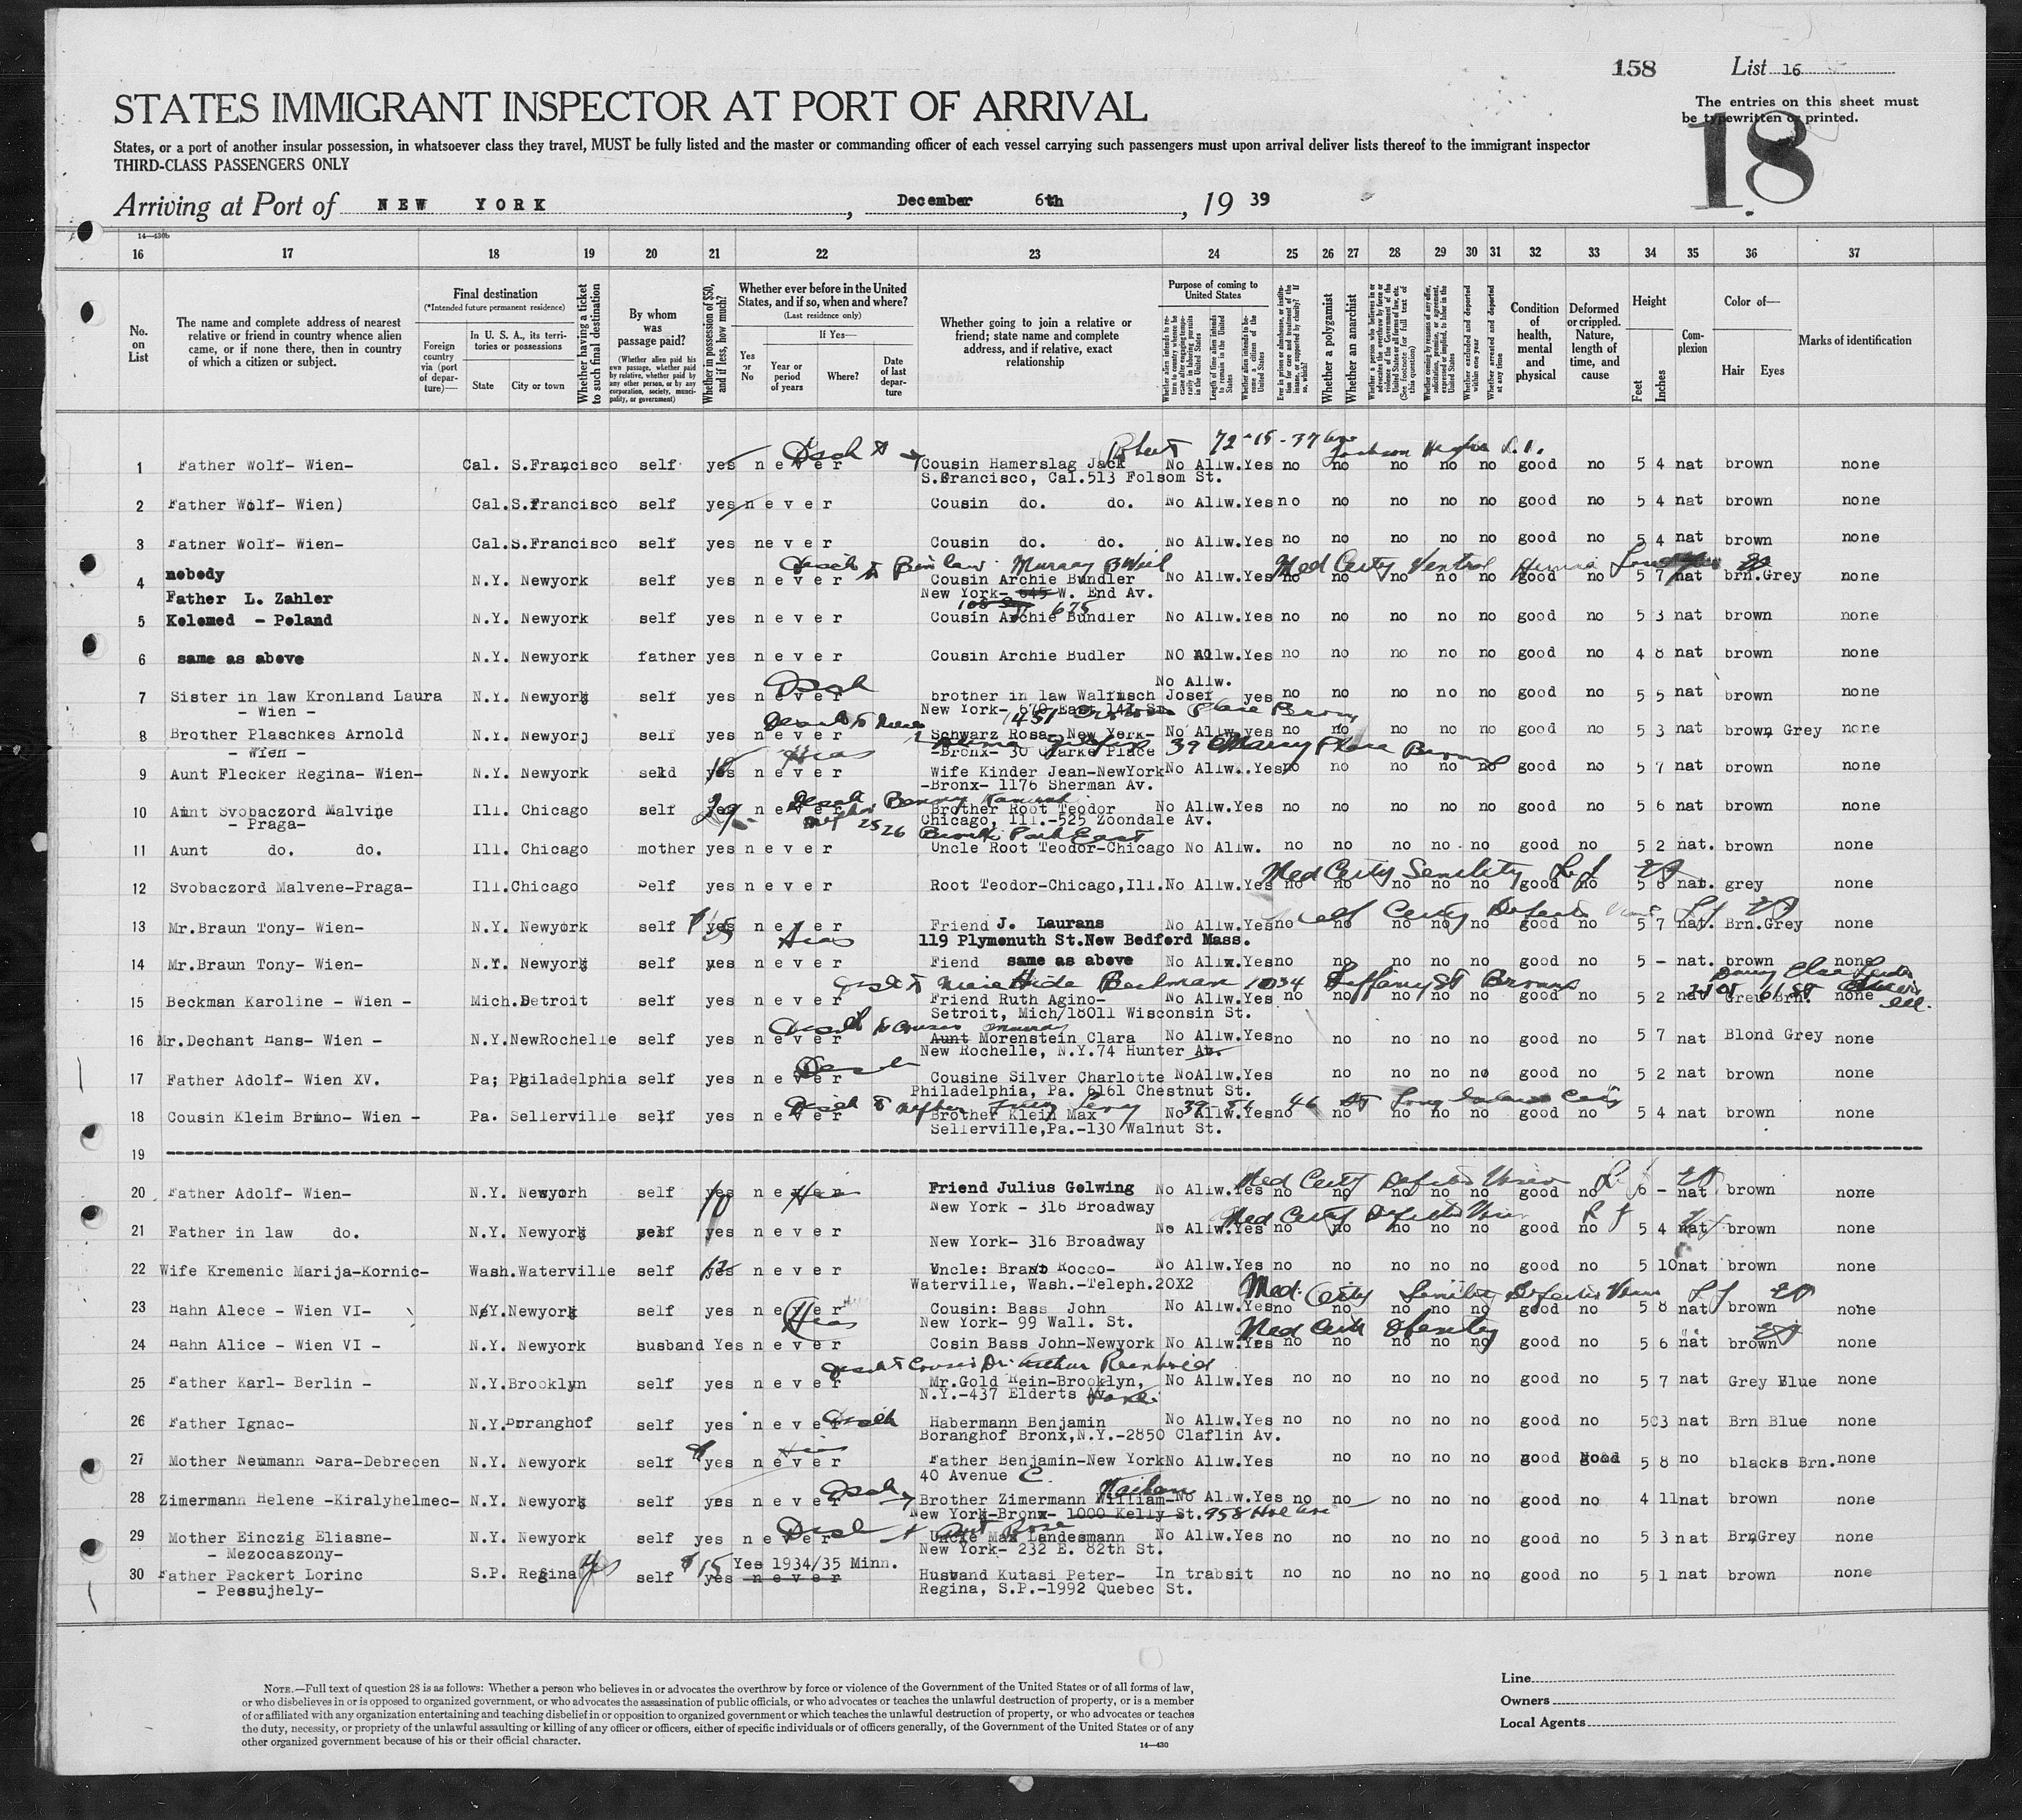 158
List 16
STATES IMMIGRANT INSPECTOR AT PORT OF ARRIVAL
The entries on this sheet must
be typewritten or printed.
18
States, or a port of another insular possession, in whatsoever class they travel, MUST be fully listed and the master or commanding officer of each vessel carrying such passengers must upon arrival deliver lists thereof to the immigrant inspector
THIRD-CLASS PASSENGERS ONLY
Arriving at Port of NEW YORK, December 6th, 19 39
14—430b
16 17 18 19 20 21 22 23 24 25 26 27 28 29 30 31 32 33 34 35 36 37
No. on List
The name and complete address of nearest relative or friend in country whence alien came, or if none there, then in country of which a citizen or subject.
Final destination
(*Intended future permanent residence)
Foreign country via (port of departure)—
In U. S. A., its territories or possessions
State
City or town
Whether having a ticket to such final destination
By whom was passage paid?
(Whether alien paid his own passage, whether paid by relative, whether paid by any other person, or by any corporation, society, municipality, or government)
Whether in possession of $50, and if less, how much?
Whether ever before in the United States, and if so, when and where?
(Last residence only)
Yes or No
If Yes—
Year or period of years
Where?
Date of last departure
Whether going to join a relative or friend; state name and complete address, and if relative, exact relationship
Purpose of coming to United States
Whether a polygamist
Whether an anarchist
Whether excluded and deported within one year
Whether arrested and deported at any time
Condition of health, mental and physical
Deformed or crippled. Nature, length of time, and cause
Height
Feet
Inches
Complexion
Color of—
Hair
Eyes
Marks of identification
72-15-37 Ave
1 Father Wolf- Wien- Cal. S.Francisco self yes never Cousin Hamerslag Jack No Allw.Yes no no no no no good no 5 4 nat brown none
S.Francisco, Cal.513 Folsom St.
2 Father Wolf- Wien) Cal.S.Francisco self yes never Cousin do. do. No Allw.Yes no no no no no good no 5 4 nat brown none
3 Father Wolf- Wien- Cal.S.Francisco self yes never Cousin do. do. No Allw.Yes no no no no no good no 5 4 nat brown none
Med Certy Ventral Hernia
4 nobody N.Y. Newyork self yes never Cousin Archie Bundler No Allw.Yes no no no no no good no 5 7 nat brn.Grey none
New York- 645 W. End Av.
675
Father L. Zahler
5 Kolomed - Poland N.Y. Newyork self yes never Cousin Archie Bundler No Allw.Yes no no no no no good no 5 3 nat brown none
6 same as above N.Y. Newyork father yes never Cousin Archie Budler NO Allw.Yes no no no no no good no 4 8 nat brown none
No Allw.
7 Sister in law Kronland Laura N.Y. Newyork self yes never brother in law Walfisch Josef yes no no no no no good no 5 5 nat brown none
- Wien - New York- 670 East 141 St.
8 Brother Plaschkes Arnold N.Y. Newyorj self yes never Schwarz Rosa, New York- No Allw.yes no no no no no good no 5 3 nat brown Grey none
- Wien - -Bronx- 30 Clarke Place
Hias
9 Aunt Flecker Regina- Wien- N.Y. Newyork seld yes never Wife Kinder Jean-NewYork No Allw..Yes no no no no no good no 5 7 nat brown none
-Bronx- 1176 Sherman Av.
10 Aunt Svobaczord Malvine Ill. Chicago self yes never Brother Root Teodor No Allw.Yes no no no no no good no 5 6 nat brown none
- Praga- Chicago, Ill.-525 Zoondale Av.
2526 Bronx Park East
11 Aunt do. do. Ill. Chicago mother yes never Uncle Root Teodor-Chicago No Allw. no no no no no good no 5 2 nat. brown none
Med Certy Senility
12 Svobaczord Malvene-Praga- Ill.Chicago self yes never Root Teodor-Chicago,Ill.No Allw.Yes no no no no no good no 5 8 nat. grey none
13 Mr.Braun Tony- Wien- N.Y. Newyork self yes never Friend J. Laurans No Allw.Yes no no no no no good no 5 7 nat. Brn.Grey none
Hias 119 Plymouuth St.New Bedford Mass.
14 Mr.Braun Tony- Wien- N.Y. Newyork self yes never Fiend same as above No Allw.Yes no no no no no good no 5 - nat. brown none
1034 Tiffany St Bronx
15 Beckman Karoline - Wien - Mich.Detroit self yes never Friend Ruth Agino- No Allw.Yes no no no no no good no 5 2 nat Greu Brn. none
Setroit, Mich/18011 Wisconsin St.
16 Mr.Dechant Hans- Wien - N.Y.NewRochelle self yes never Aunt Morenstein Clara No Allw.Yes no no no no no good no 5 7 nat Blond Grey none
New Rochelle, N.Y.74 Hunter Av.
17 Father Adolf- Wien XV. Pa; Philadelphia self yes never Cousine Silver Charlotte NoAllw.Yes no no no no good no 5 2 nat brown none
Philadelphia, Pa. 6161 Chestnut St.
18 Cousin Kleim Bruno- Wien - Pa. Sellerville self yes never Brother Klein Max No Allw.Yes no no no no no good no 5 4 nat brown none
Sellerville,Pa.-130 Walnut St.
19
Med Certy Defective Vision
20 Father Adolf- Wien- N.Y. Newyorh self yes never Friend Julius Gelwing No Allw.Yes no no no no no good no 6 - nat brown none
New York - 316 Broadway
Med Certy Defective Vision
21 Father in law do. N.Y. Newyork self yes never No Allw.Yes no no no no no good no 5 4 nat brown none
New York- 316 Broadway
22 Wife Kremenic Marija-Kornic- Wash.Waterville self yes never Uncle: Brant Rocco- No Allw.Yes no no no no no good no 5 10 nat brown none
Waterville, Wash.-Teleph.20X2
Med. Certy Senility Defective Vision
23 Hahn Alece - Wien VI- N.Y.Newyork self yes never Cousin: Bass John No Allw.Yes no no no no no good no 5 8 nat brown none
Hias New York- 99 Wall. St.
Med Certy
24 Hahn Alice - Wien VI - N.Y. Newyork husband Yes never Cosin Bass John-Newyork No Allw.Yes no no no no no good no 5 6 nat brown none
25 Father Karl- Berlin - N.Y.Brooklyn self yes never Mr.Gold Hein-Brooklyn, No Allw.Yes no no no no no good no 5 7 nat Grey Blue none
N.Y.-437 Elderts Av.
26 Father Ignac- N.Y.Doranghof self yes never Habermann Benjamin No Allw.Yes no no no no no good no 503 nat Brn Blue none
Boranghof Bronx,N.Y.-2850 Claflin Av.
Hias
27 Mother Neumann Sara-Debrecen N.Y. Newyork self yes never Father Benjamin-New York No Allw.Yes no no no no good good 5 8 no blacks Brn. none
40 Avenue C
28 Zimermann Helene -Kiralyhelmec- N.Y. Newyork self yes never Brother Zimermann William- No Allw.Yes no no no no no good no 4 11 nat brown none
New York-Bronx- 1000 Kelly St.
29 Mother Einczig Eliasne- N.Y. Newyork self yes never Uncle Max Landesmann No Allw.Yes no no no no no good no 5 3 nat Brn,Grey none
- Mezocaszony- New York- 232 E. 82th St.
15 Yes 1934/35 Minn.
30 Father Packert Lorinc S.P. Regina yes self yes never Husband Kutasi Peter- In transit no no no no no good no 5 1 nat brown none
- Pessujhely- Regina, S.P.-1992 Quebec St.
NOTE.—Full text of question 28 is as follows: Whether a person who believes in or advocates the overthrow by force or violence of the Government of the United States or of all forms of law,
or who disbelieves in or is opposed to organized government, or who advocates the assassination of public officials, or who advocates or teaches the unlawful destruction of property, or is a member
of or affiliated with any organization entertaining and teaching disbelief in or opposition to organized government or which teaches the unlawful destruction of property, or who advocates or teaches
the duty, necessity, or propriety of the unlawful assaulting or killing of any officer or officers, either of specific individuals or of officers generally, of the Government of the United States or of any
other organized government because of his or their official character.
14—430
Line
Owners
Local Agents